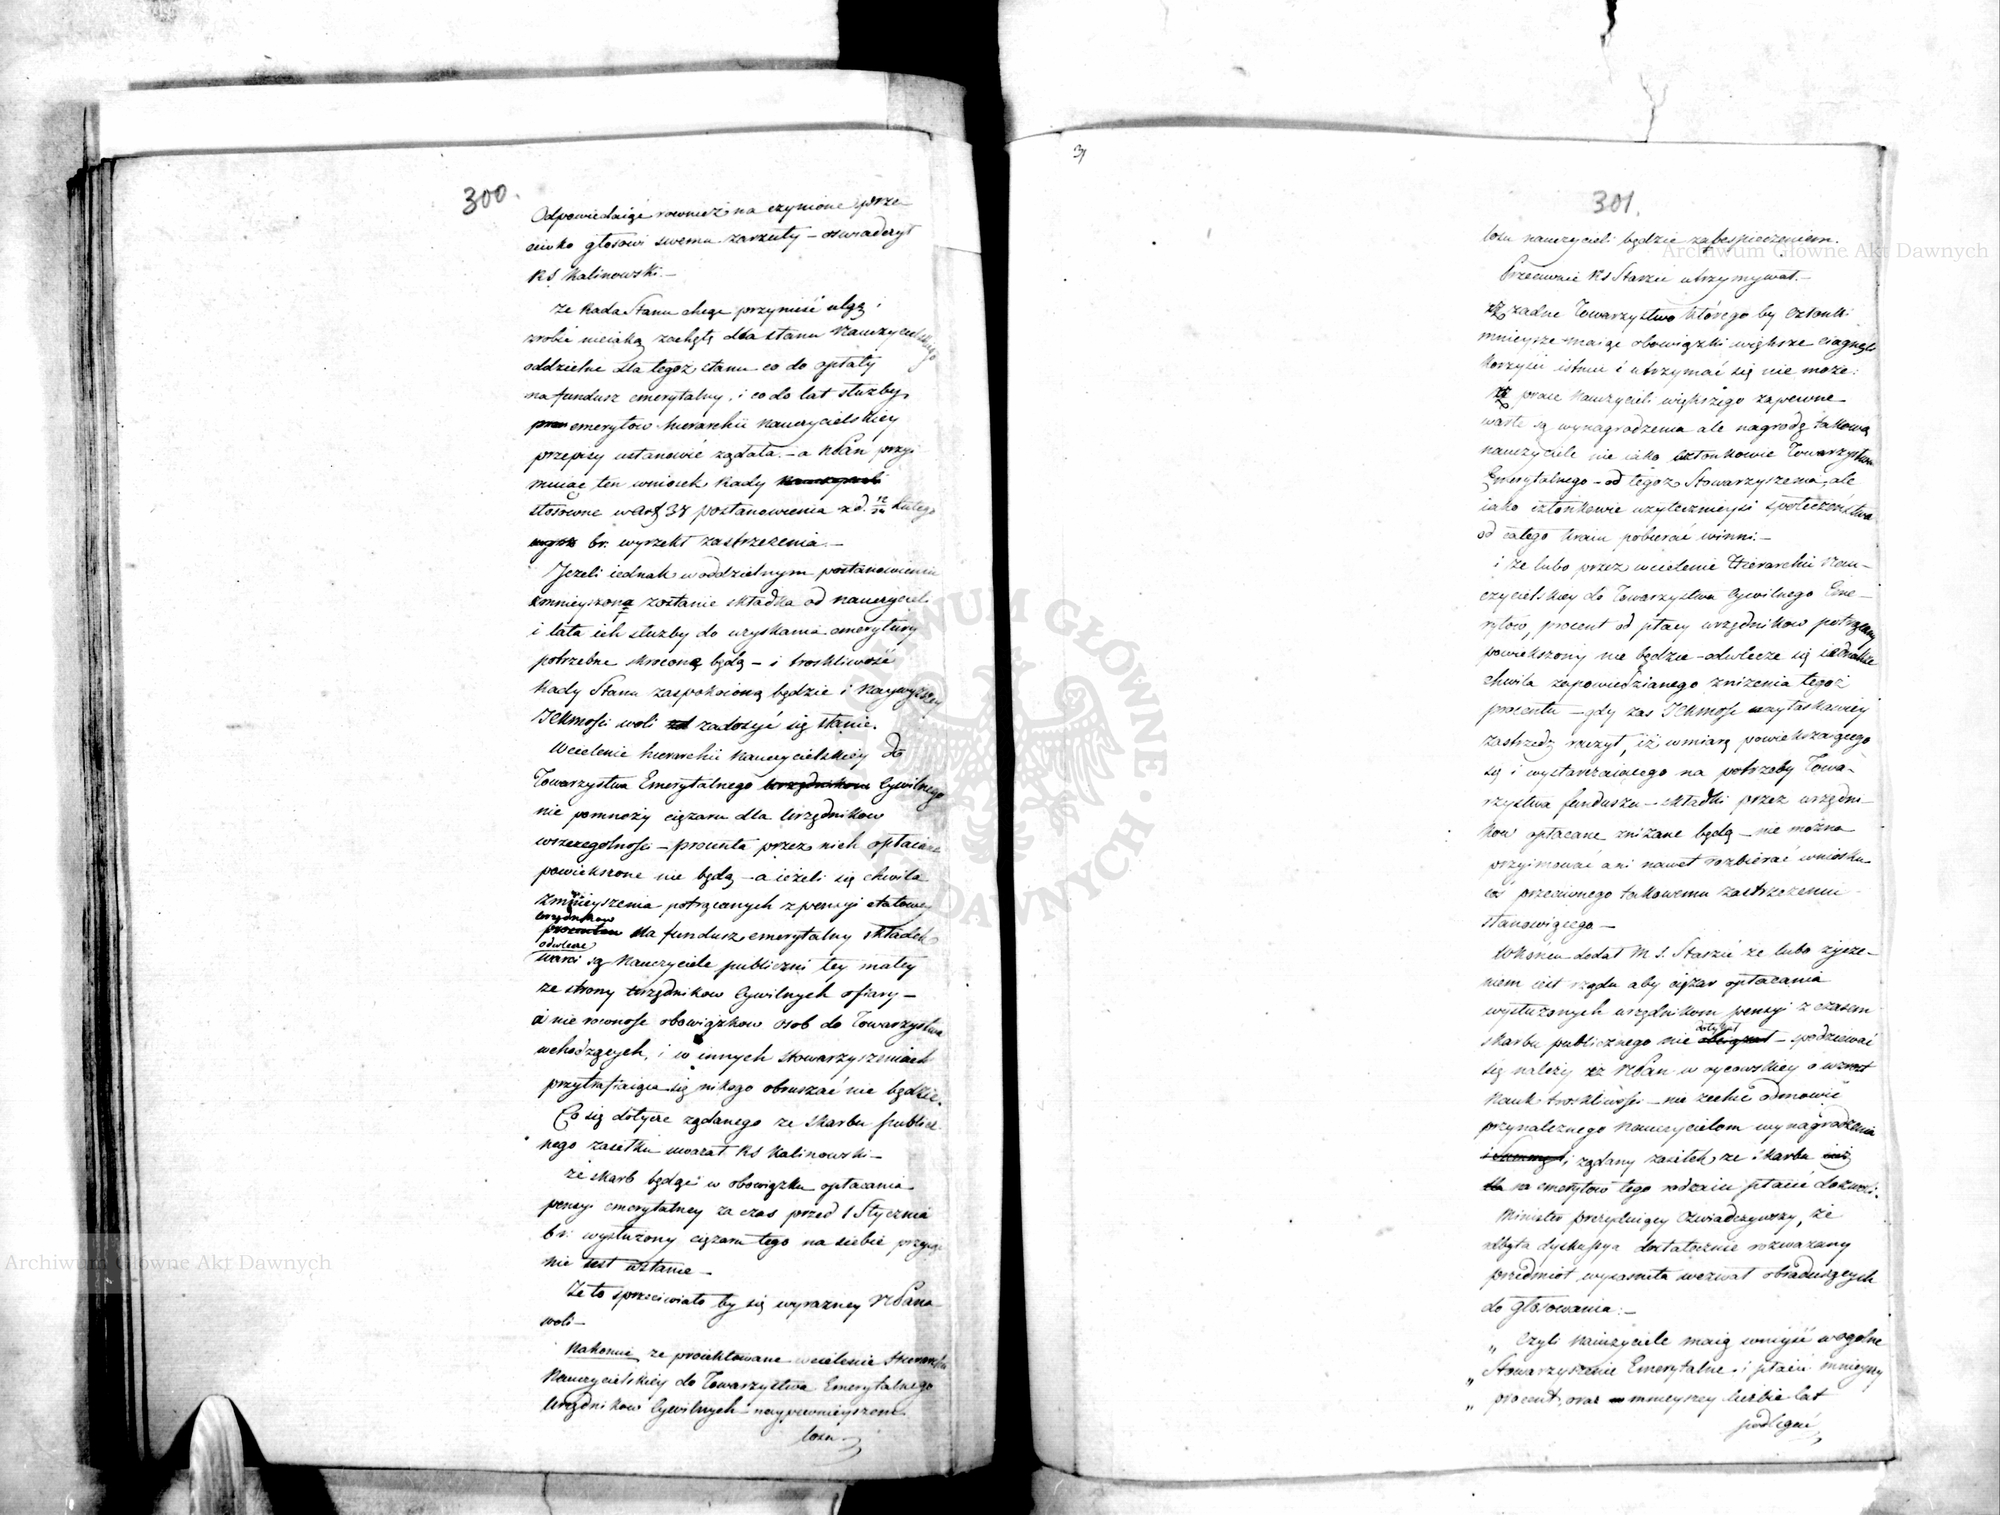 300.
Odpowiedaiąc rownież na czynione prze
ciwko głosowi swemu zarzuty – oswiadczył
RS Kalinowski. –
że Rada Stanu chcąc przynieść ulgę i
zrobić nieiaką zachętę dla stanu Nauczycielskiego
oddzielne dla tegoż stanu co do opłaty
na fundusz emerytalny, i co do lat służby
emerytow hierarchii nauczycielskiey
przepisy ustanowić żądała. – a NPan przyi
muiąc ten wniosek Rady
stosowne w Art 37 postanowienia z d. 12/24 Lutego
br. wyrzekł zastrzeżenia. –
Jeżeli iednak w oddzielnym postanowieniu
zmnieyszoną zostanie składka od nauczycieli
i lata ich służby do uzyskania emerytury
potrzebne skrocone będą – i troskliwość
Rady Stanu zaspokoioną będzie i Naywyższey
JCKMości woli zadosyć się stanie.
Wcielenie hierarchii Nauczycielskiey do
Towarzystwa Emerytalnego Urzędnikow Cywilnego
nie pomnoży ciężaru dla Urzędnikow
wszczegolności – procenta przez nich opłacane
powiększone nie będą – a ieżeli się chwila
zmnieyszenia potrącanych z pensyi etatowey
urzędnikow
na fundusz emerytalny składek
odwlecze
warci są Nauczyciele publiczni tey małey
ze strony Urzędnikow Cywilnych ofiary –
a nie rowność obowiązkow osob do Towarzystwa
wchodzących, i w innych stowarzyszeniach
przytrafiaiąca się nikogo obruszać nie będzie.
Co się dotycze żądanego ze skarbu publicz
nego zasiłku uważał RS Kalinowski –
że skarb będąc w obowiązku opłacania
pensyi emerytalney za czas przed 1 Stycznia
br: wysłużony ciężaru tego na siebie przyiąć
nie iest w stanie –
Że to sprzeciwiało by się wyrazney NPana
woli –
Nakoniec że proiektowane wcielenie Hierarchii
Nauczycielskiey do Towarzystwa Emerytalnego
Urzędnikow Cywilnych naypewnieyszem
losu
301.
losu nauczycieli będzie zabespieczeniem.
Przeciwnie RS Staszic utrzymywał. –
że żadne Towarzystwo którego by Członki
mnieysze maiąc obowiązki większe ciągnęli
korzyści istnieć i utrzymać się nie może:
że prace Nauczycieli większego zapewne
warte są wynagrodzenia ale nagrodę takową
nauczyciele nie iako Członkowie Towarzystwa
Emerytalnego – od tegoż Stowarzyszenia, ale
iako członkowie użytecznieysi społeczeństwa
od całego kraiu pobierać winni. –
i że lubo przez wcielenie Hierarchii Nau –
czycielskiey do Towarzystwa Cywilnego Eme –
rytow, procent od płacy urzędnikow potrącany
powiekszony nie będzie – odwlecze się iednakże
chwila zapowiedzianego zniżenia tegoż
procentu – gdy zaś JCKMość nayłaskawiey
zastrzedz raczył, iż w miarę powiększaiącego
się i wystarczaiącego na potrzeby Towa –
rzystwa funduszu – składki przez urzędni –
kow opłacane zniżane będą – nie można
przyimować ani nawet rozbierać wniosku
coś przeciwnego takowemu zastrzeżeniu
stanowiącego –
Wkońcu dodał M S. Staszic że lubo życze –
niem iest rządu aby ciężar opłacania
wysłużonych urzędnikom pensyi z czasem
dotykał
skarbu publicznego nie – spodziewać
się należy że NPan w oycowskiey o wzrost
Nauk troskliwości – nie zechce odmowić
przynależnego Nauczycielom wynagrodzenia
i żądany zasiłek ze Skarbu
na emerytow tego rodzaiu płacić dozwoli.
Minister prezyduiący Oświadczywszy, że
odbyta dyskussya dostatecznie rozważany
przedmiot wyiasniła wezwał obraduiących
do głosowania: –
„ Czyli Nauczyciele maią wniyść wogolne
„ Stowarzyszenie Emerytalne. i płacić mnieyszy
„ procent, oraz mnieyszey liczbie lat
podlegać
Archiwum Główne Akt Dawnych
Archiwum Główne Akt Dawnych
ARCHIWUM GŁÓWNE AKT DAWNYCH